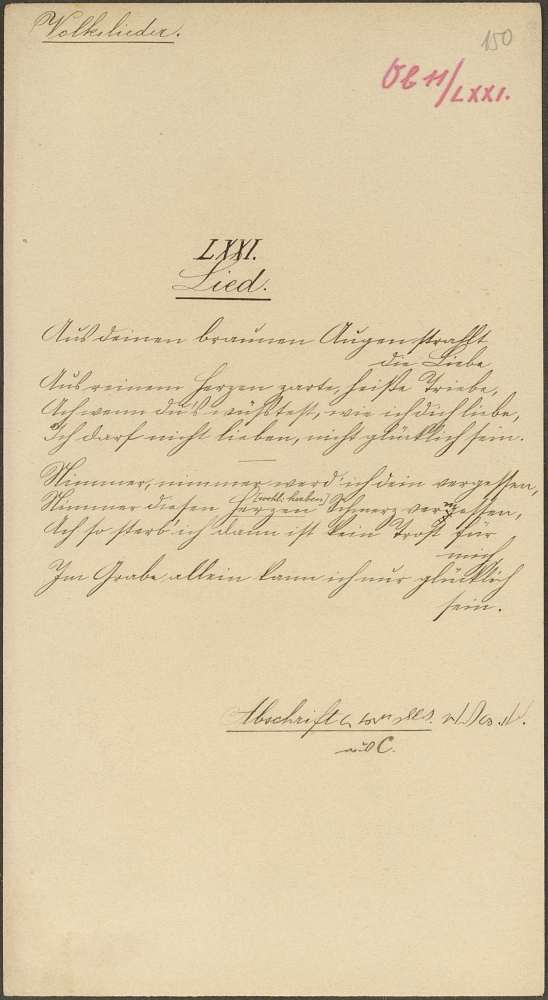 Volkslieder.
150
Ob 11/LXXI.
LXXI.
Lied.
Aus deinen braunen Augen strahlt
die Liebe,
Aus reinem Herzen zarte, heiße Triebe,
Ach wenn du's wüsstest, wie ich dich liebe,
Ich darf nicht lieben, nicht glücklich sein.
Nimmer, nimmer werd' ich dein vergessen,
[wohl: herben]
Nimmer diesen Herzen Schmerz vergessen,
Ach so sterb' ich dann ist kein Trost für
mich,
Im Grabe allein kann ich nur glücklich
sein.
Abschrift
aus C.